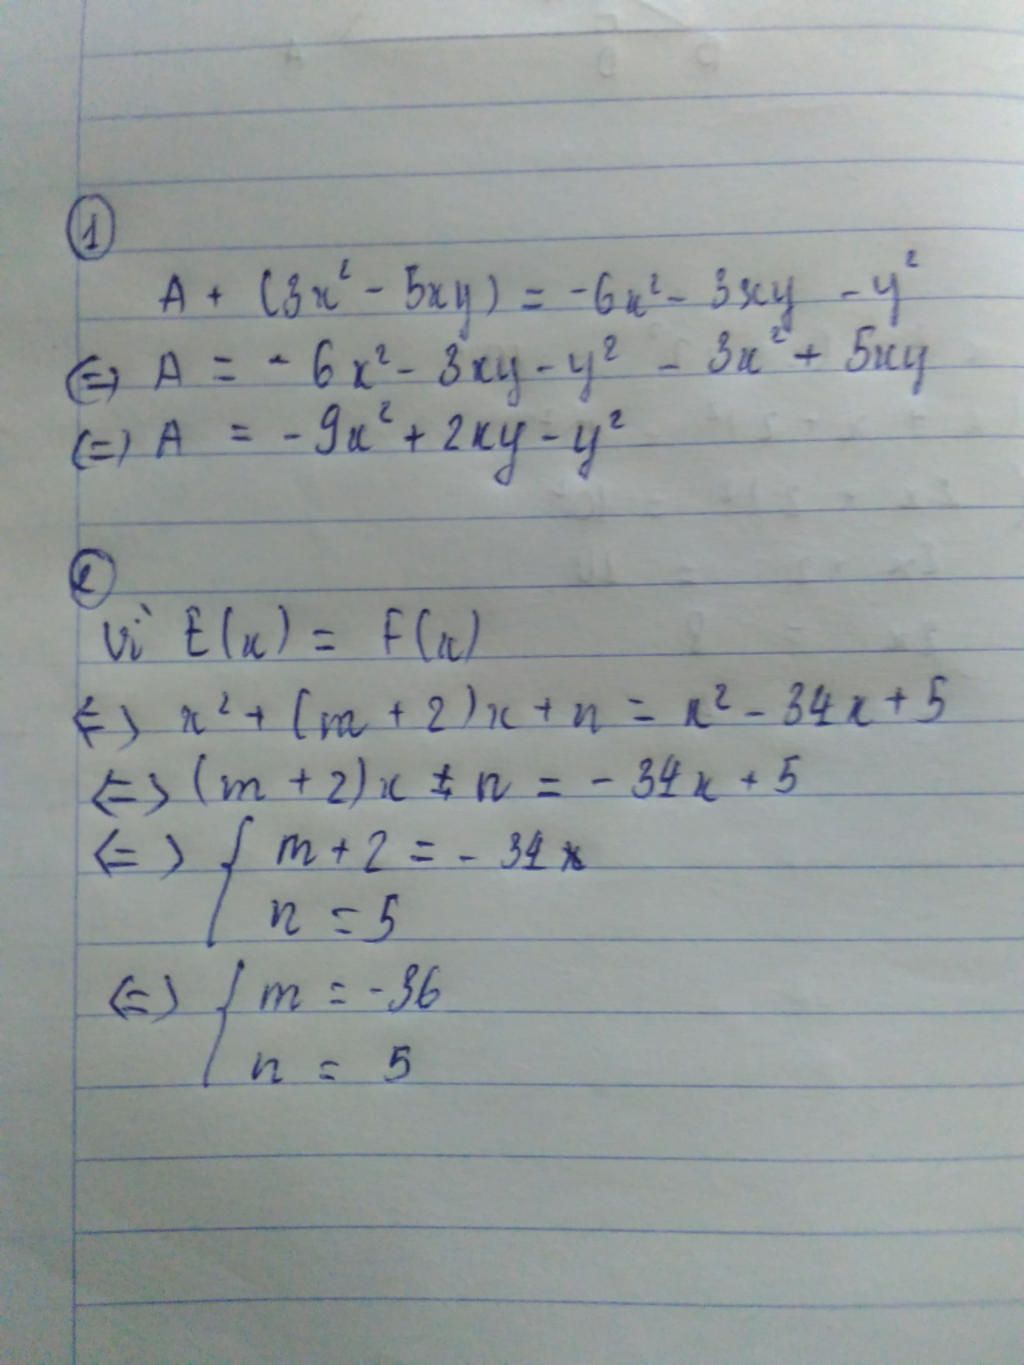 1
A + (3x² - 5xy) = -6x² - 3xy - y²
(=) A = - 6x² - 3xy - y² - 3x² + 5xy
(=) A = - 9x² + 2xy - y²
2
Vì E(x) = F(x)
(=) x² + (m + 2)x + n = x² - 34x + 5
(=) (m + 2)x + n = - 34x + 5
(=) { m + 2 = - 34
n = 5
(=) { m = -36
n = 5